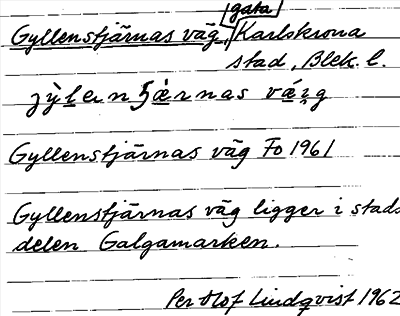 gata
Gyllenstjärnas väg, Karlskrona
stad, Blek. l.
Gyllenstjärnas väg Fo 1961
Gyllenstjärnas väg ligger i stads
delen Galgamarken.
Per Olof Lindqvist 1962